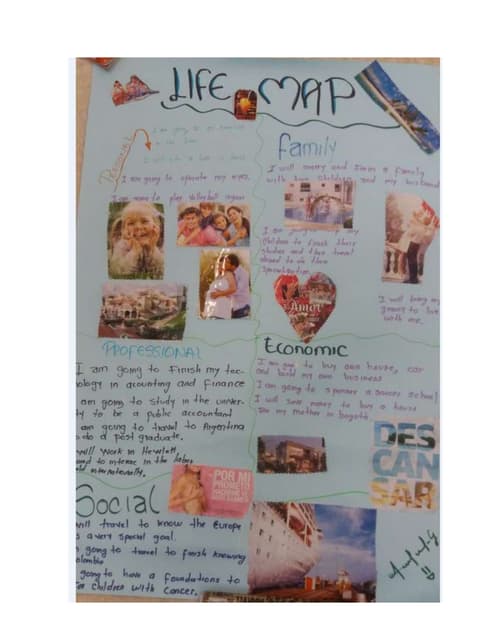 LIFE MAP
PERSONAL
I am going to
I am going to operate my eyes.
I am going to play volleyball again
family
I will marry and form a family
with two children and my husband
children to finish their
studies and then travel
abroad to do their
specialization
Amor
I will bring my
granny to live
with me.
PROFESSIONAL
I am going to finish my tec-
ology in acounting and finance
am going to study in the univer-
ty to be a public acountant
am going to travel to Argentina
do a post graduate.
will work in Hewlett,
in the
internationally.
Economic
I am going to buy own house, car
and build my own business
I am going to sponsor a dances school
I will save money to buy a house
for my mother in bogota
DES
CAN
SAR
Social
POR MI
will travel to know the Europe
s a very special goal.
going to travel to finish knowing
olombia
going to have a foundations to
for children with cancer.